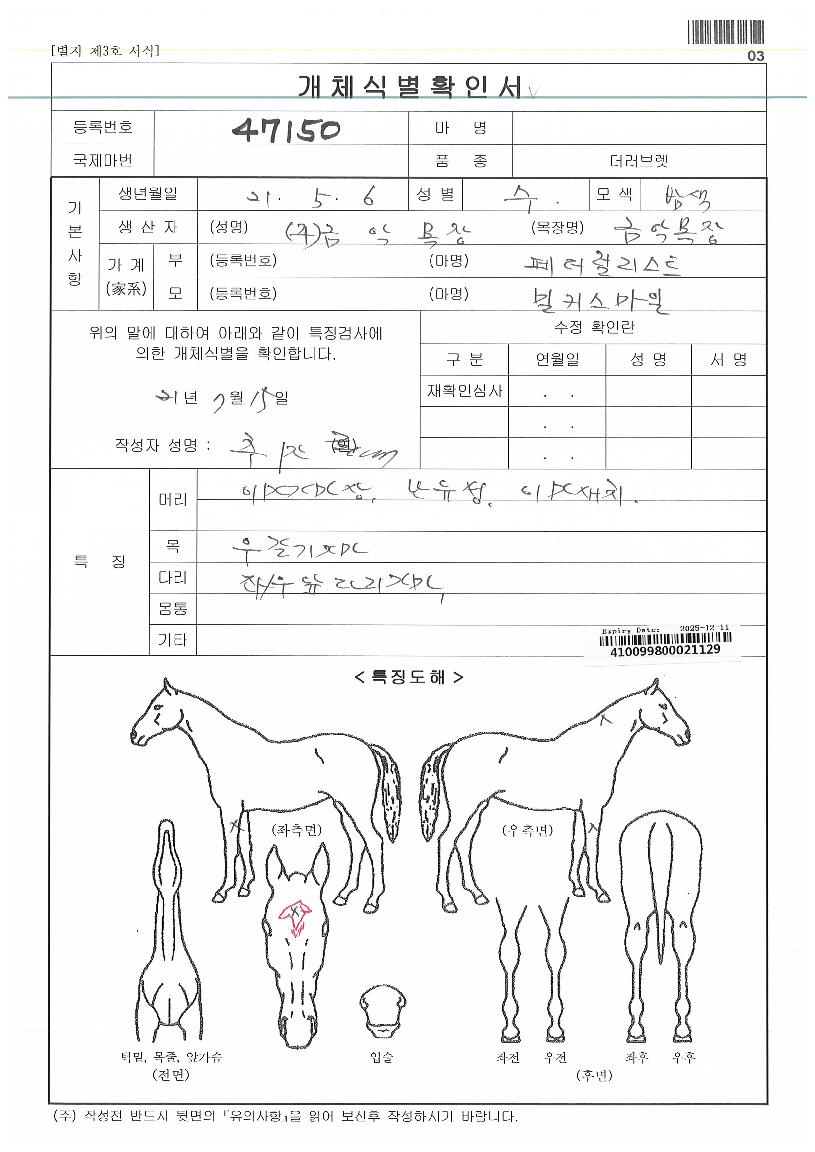 [별지 제3호 서식]
03
개체식별확인서
등록번호 47150 마 명
국제마번 품 종 더러브렛
기본사항
생년월일 21. 5. 6 성별 수. 모색 밤색
생산자 (성명) (주)금악목장 (목장명) 금악목장
가계(家系) 부 (등록번호) (마명) 페더럴리스트
모 (등록번호) (마명) 빌커스마일
위의 말에 대하여 아래와 같이 특징검사에
의한 개체식별을 확인합니다.
21년 7월 15일
작성자 성명 :
수정 확인란
구분 연월일 성명 서명
재확인심사 . .
. .
. .
특 징
머리
목 우
다리 좌/우 앞다리
몸통
기타
Expiry Date: 2025-12-11
410099800021129
< 특징도해 >
(좌측면)
(우측면)
턱밑, 목줄, 앞가슴
(전면)
입술
좌전 우전 좌후 우후
(후면)
(주) 작성전 반드시 뒷면의 「유의사항」을 읽어 보신후 작성하시기 바랍니다.